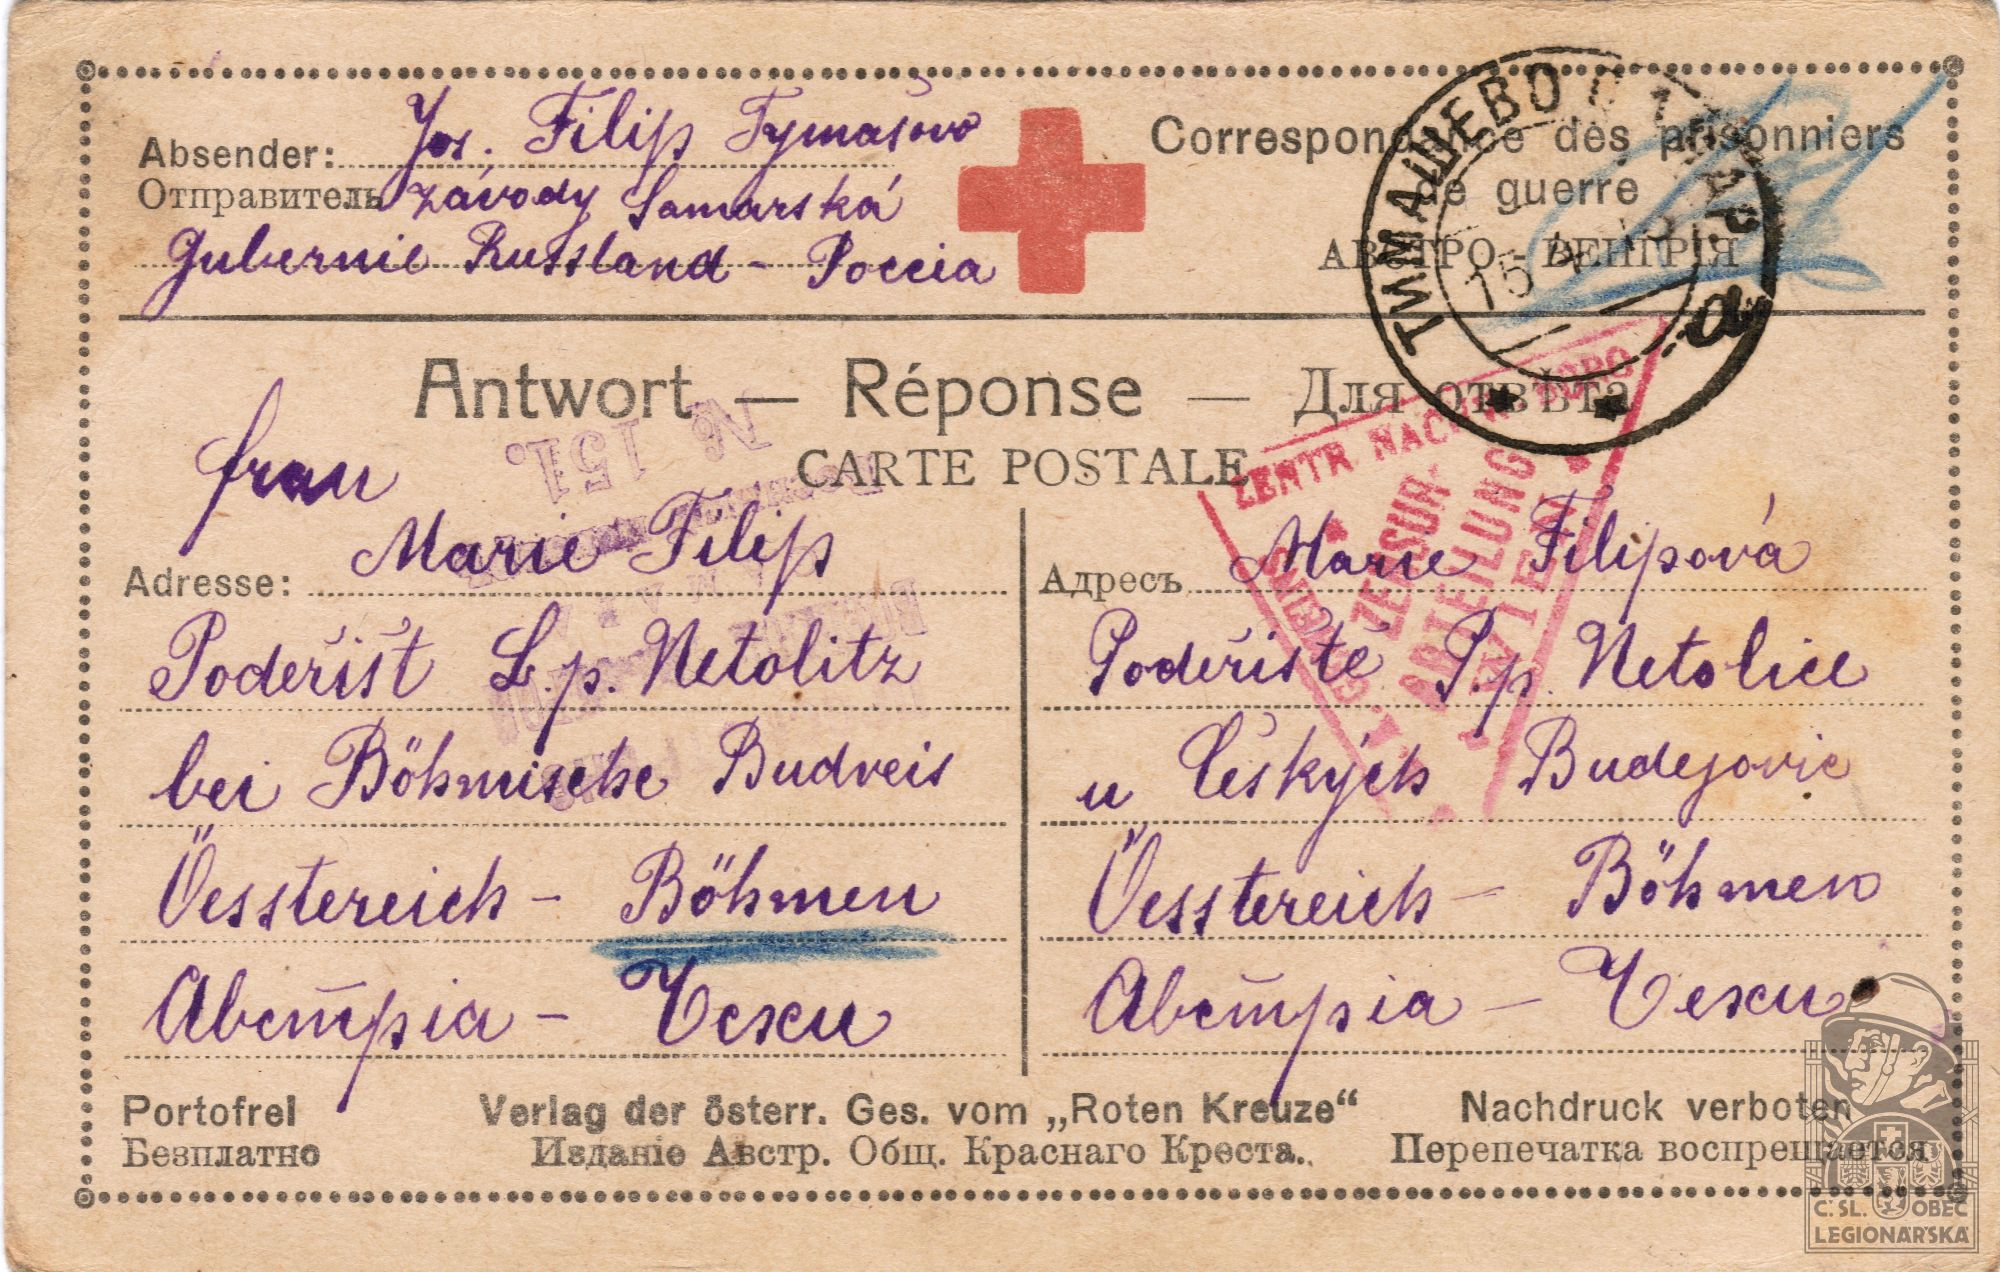 Absender: Jos. Filip Tymašovo
Отправитель závody Samarská
Gubernie Russland - Россia
Correspondance des prisonniers
de guerre
АВСТРО-ВЕНГРІЯ
ТИМАШЕВО
15
a
Antwort — Réponse — Для отвѣта
CARTE POSTALE
№ 151.
ZENTR NACHW BÜRO
ZENSUR-
ABTEILUNG
WIEN
frau
Adresse: Marie Filip
Poděrišt L.p. Netolitz
bei Böhmische Budveis
Öesstereich - Böhmen
Abcmpia - Чехи
Адресъ Marie Filipová
Poděriště P.p. Netolice
u Českých Budejovic
Öesstereich - Böhmen
Abcmpia - Чехи
Portofrei Verlag der österr. Ges. vom „Roten Kreuze“ Nachdruck verboten
Безплатно Изданіе Австр. Общ. Краснаго Креста. Перепечатка воспрещается
Č. SL. OBEC
LEGIONÁŘSKÁ